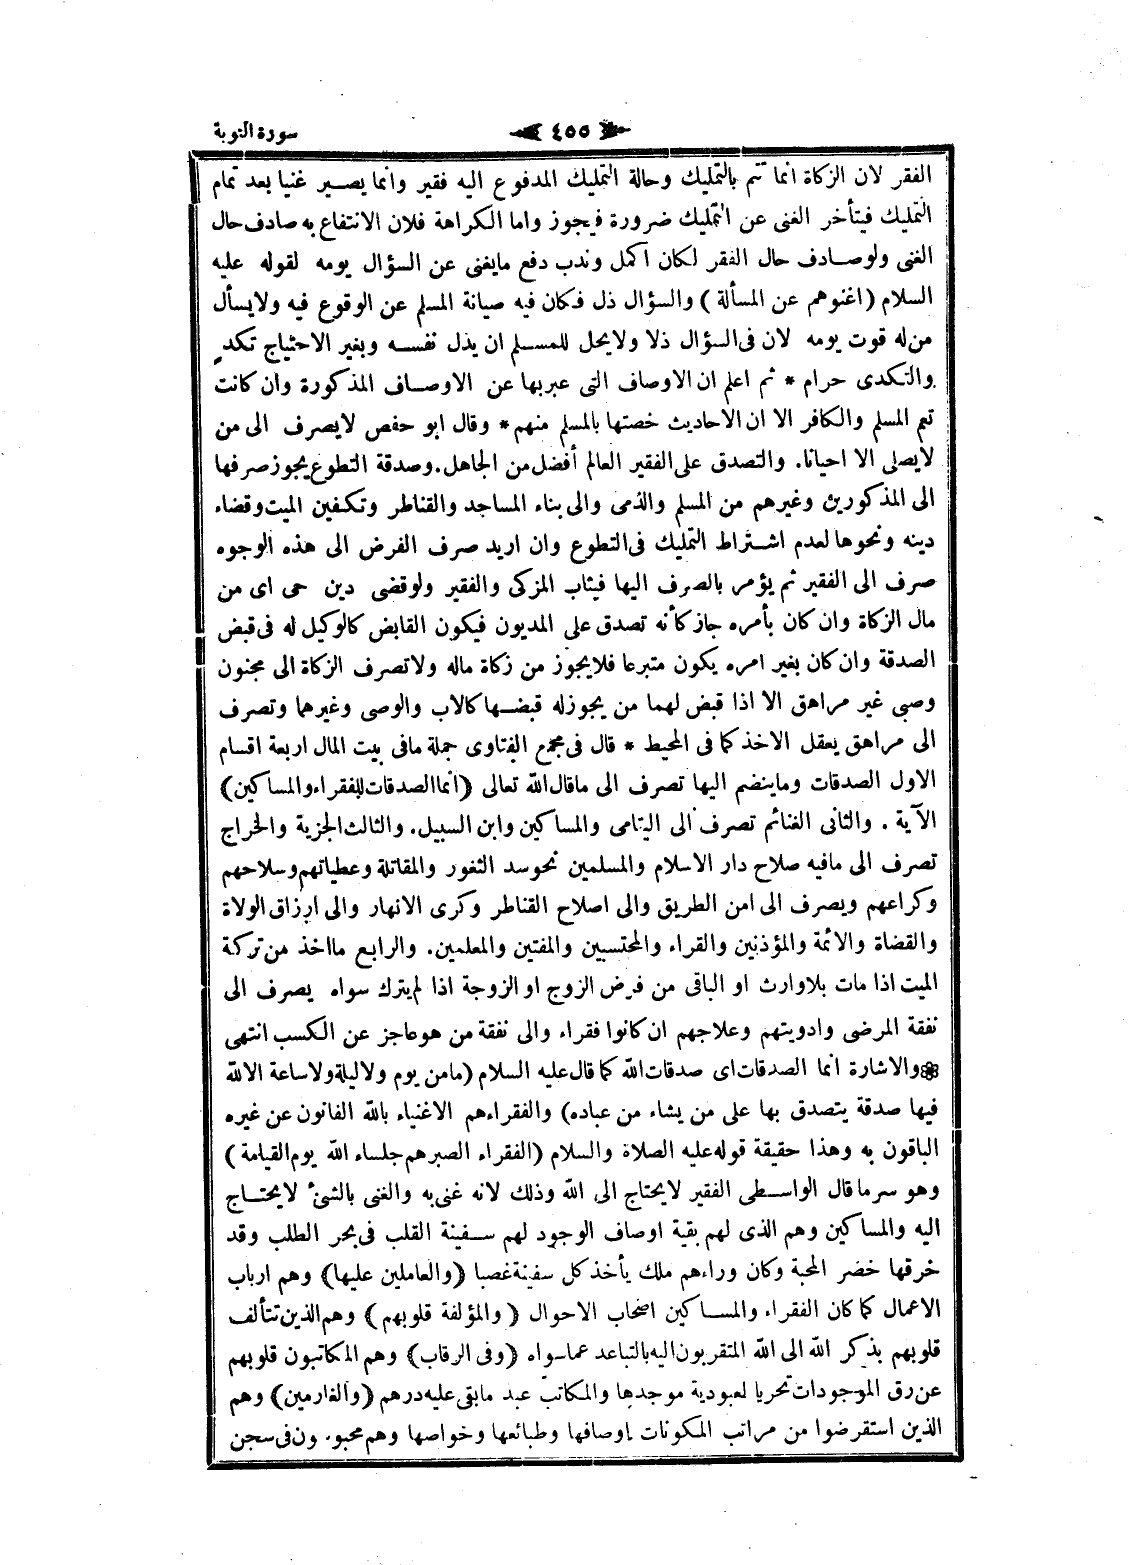 ﴿ ٤٥٥ ﴾ سورة التوبة
الفقر لان الزكاة انما تتم بالتمليك وحالة التمليك المدفوع اليه فقير وانما يصير غنيا بعد تمام
التمليك فيتأخر الغنى عن التمليك ضرورة فيجوز واما الكراهة فلان الانتفاع به صادف حال
الغنى ولو صادف حال الفقر لكان اكمل وندب دفع مايغنى عن السؤال يومه لقوله عليه
السلام (اغنوهم عن المسألة) والسؤال ذل فكان فيه صيانة المسلم عن الوقوع فيه ولا يسأل
من له قوت يومه لان فى السؤال ذلا ولايحل للمسلم ان يذل نفسه وبغير الاحتياج تكد
والتكدى حرام * ثم اعلم ان الاوصاف التى عبر بها عن الاوصاف المذكورة وان كانت
تعم المسلم والكافر الا ان الاحاديث خصتها بالمسلم منهم * وقال ابو حفص لايصرف الى من
لايصلى الا احيانا. والتصدق على الفقير العالم أفضل من الجاهل. وصدقة التطوع يجوز صرفها
الى المذكورين وغيرهم من المسلم والذمى والى بناء المساجد والقناطر وتكفين الميت وقضاء
دينه ونحوها لعدم اشتراط التمليك فى التطوع وان اريد صرف الفرض الى هذه الوجوه
صرف الى الفقير ثم يؤمر بالصرف اليها فيثاب المزكى والفقير ولو قضى دين حى اى من
مال الزكاة وان كان بأمره جاز كأنه تصدق على المديون فيكون القابض كالوكيل له فى قبض
الصدقة وان كان بغير امره يكون متبرعا فلايجوز من زكاة ماله ولاتصرف الزكاة الى مجنون
وصبى غير مراهق الا اذا قبض لهما من يجوز له قبضها كالاب والوصى وغيرهما وتصرف
الى مراهق يعقل الاخذ كما فى المحيط * قال فى مجمع الفتاوى جملة مافى بيت المال اربعة اقسام
الاول الصدقات وماينضم اليها تصرف الى ماقال الله تعالى ﴿انما الصدقات للفقراء والمساكين﴾
الآية . والثانى الغنائم تصرف الى اليتامى والمساكين وابن السبيل. والثالث الجزية والخراج
تصرف الى مافيه صلاح دار الاسلام والمسلمين نحو سد الثغور والمقاتلة وعطياتهم وسلاحهم
وكراعهم ويصرف الى امن الطريق والى اصلاح القناطر وكرى الانهار والى ارزاق الولاة
والقضاة والائمة والمؤذنين والقراء والمحتسبين والمفتين والمعلمين. والرابع مااخذ من تركة
الميت اذا مات بلاوارث او الباقى من فرض الزوج او الزوجة اذا لم يترك سواه يصرف الى
نفقة المرضى وادويتهم وعلاجهم ان كانوا فقراء والى نفقة من هو عاجز عن الكسب انتهى
والاشارة انما الصدقات اى صدقات الله كما قال عليه السلام (مامن يوم ولاليلة ولاساعة الالله
فيها صدقة يتصدق بها على من يشاء من عباده) والفقراءهم الاغنياء بالله الفانون عن غيره
الباقون به وهذا حقيقة قوله عليه الصلاة والسلام (الفقراء الصبرهم جلساء الله يوم القيامة)
وهو سر ماقال الواسطى الفقير لايحتاج الى الله وذلك لانه غنى به والغنى بالشئ لايحتاج
اليه والمساكين وهم الذى لهم بقية اوصاف الوجود لهم سفينة القلب فى بحر الطلب وقد
خرقها خضر المحبة وكان وراءهم ملك يأخذ كل سفينة غصبا ﴿والعاملين عليها﴾ وهم ارباب
الاعمال كما كان الفقراء والمساكين اصحاب الاحوال ﴿والمؤلفة قلوبهم﴾ وهم الذين تتألف
قلوبهم بذكر الله الى الله المتقربون اليه بالتباعد عما سواه ﴿وفى الرقاب﴾ وهم المكاتبون قلوبهم
عن رق الموجودات تحريا لعبودية موجدها والمكاتب عبد مابقى عليه درهم ﴿والغارمين﴾ وهم
الذين استقرضوا من مراتب المكونات اوصافها وطبائعها وخواصها وهم محبوسون فى سجن